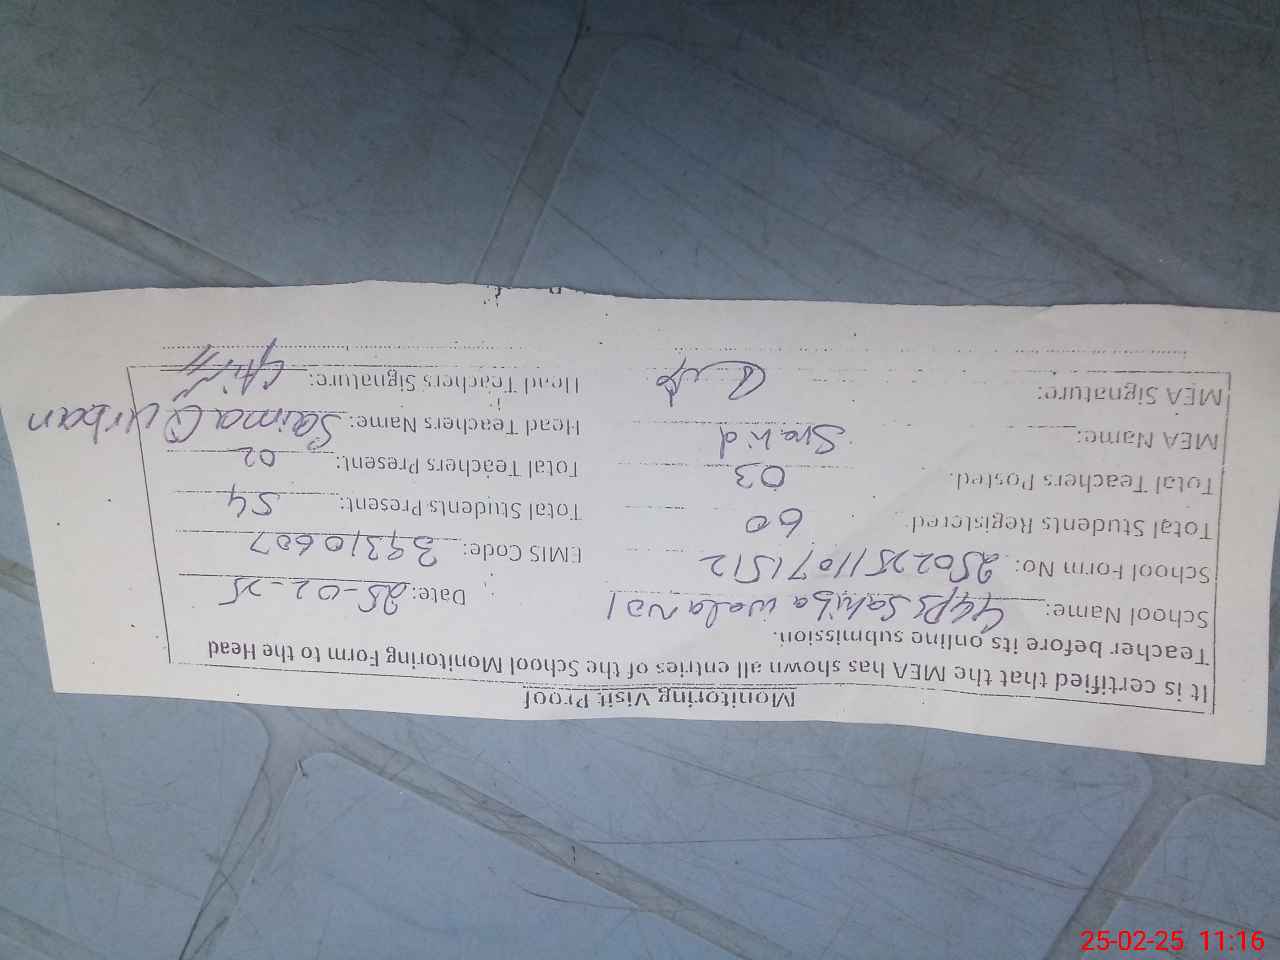 Monitoring Visit Proof
It is certified that the MEA has shown all entries of the School Monitoring Form to the Head
Teacher before its online submission.
School Name: GGPS Sahiba wala No 1 Date: 25-02-25
School Form No: 25022511071512 EMIS Code: 39310607
Total Students Registered 60 Total Students Present: 54
Total Teachers Posted. 03 Total Teachers Present: 02
MEA Name: Shahid Head Teachers Name: Saima Qurban
MEA Signature: Head Teachers Signature:
25-02-25 11:16